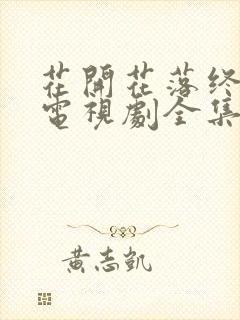 花開花落终
電視劇全集
黃志凱